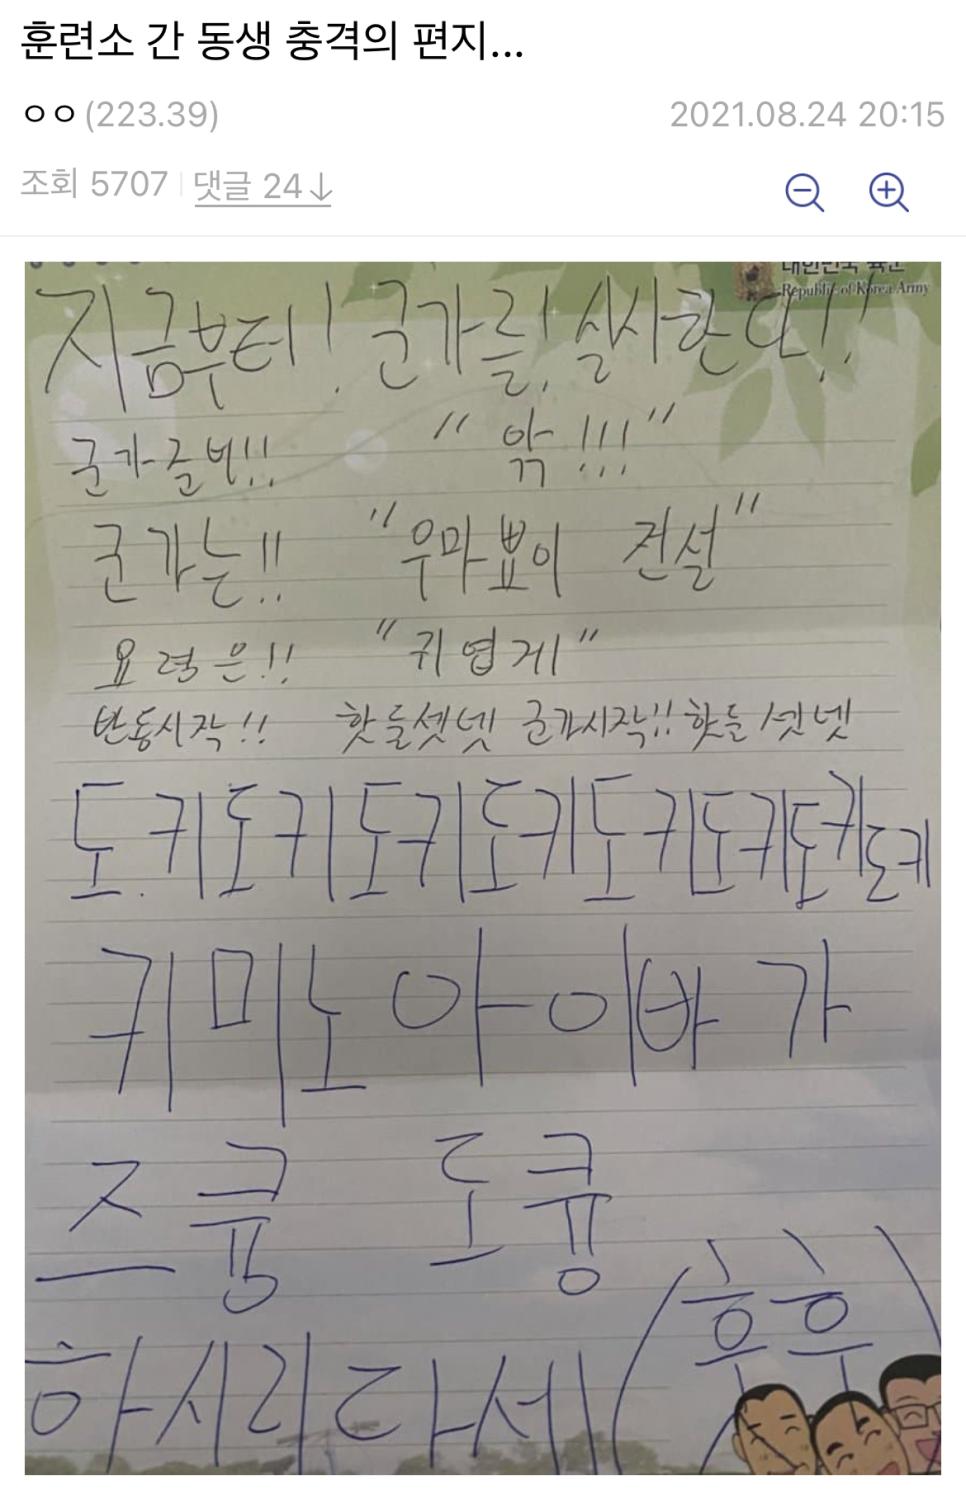 훈련소 간 동생 충격의 편지...
ㅇㅇ(223.39)
2021.08.24 20:15
조회 5707 | 댓글 24↓
대한민국 육군
Republic of Korea Army
지금부터! 군가를! 실시한다!!
군가준비!! "악!!!"
군가는!! "우마뾰이 전설"
요령은!! "귀엽게"
반동시작!! 핫둘셋넷 군가시작!! 핫둘셋넷
도.키도키도키도키도키도키도키도키
키미노아이바가
즈큥 도큥
하시리다세(후후)